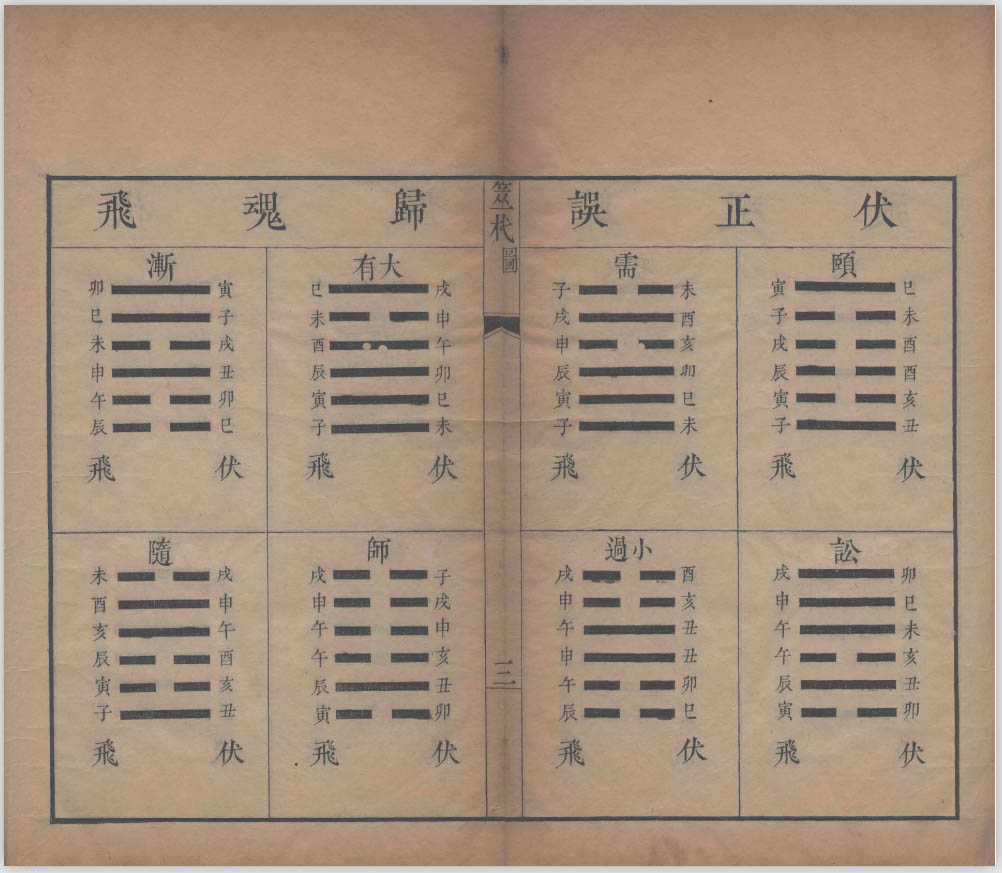 伏正誤
頤
巳未酉酉亥丑伏
寅子戌辰寅子飛
需
未酉亥卯巳未伏
子戌申辰寅子飛
訟
卯巳未亥丑卯伏
戌申午午辰寅飛
小過
酉亥丑丑卯巳伏
戌申午申午辰飛
筮杙圖
三
歸魂飛
大有
戌申午卯巳未伏
巳未酉辰寅子飛
漸
寅子戌丑卯巳伏
卯巳未申午辰飛
師
子戌申亥丑卯伏
戌申午午辰寅飛
隨
戌申午酉亥丑伏
未酉亥辰寅子飛